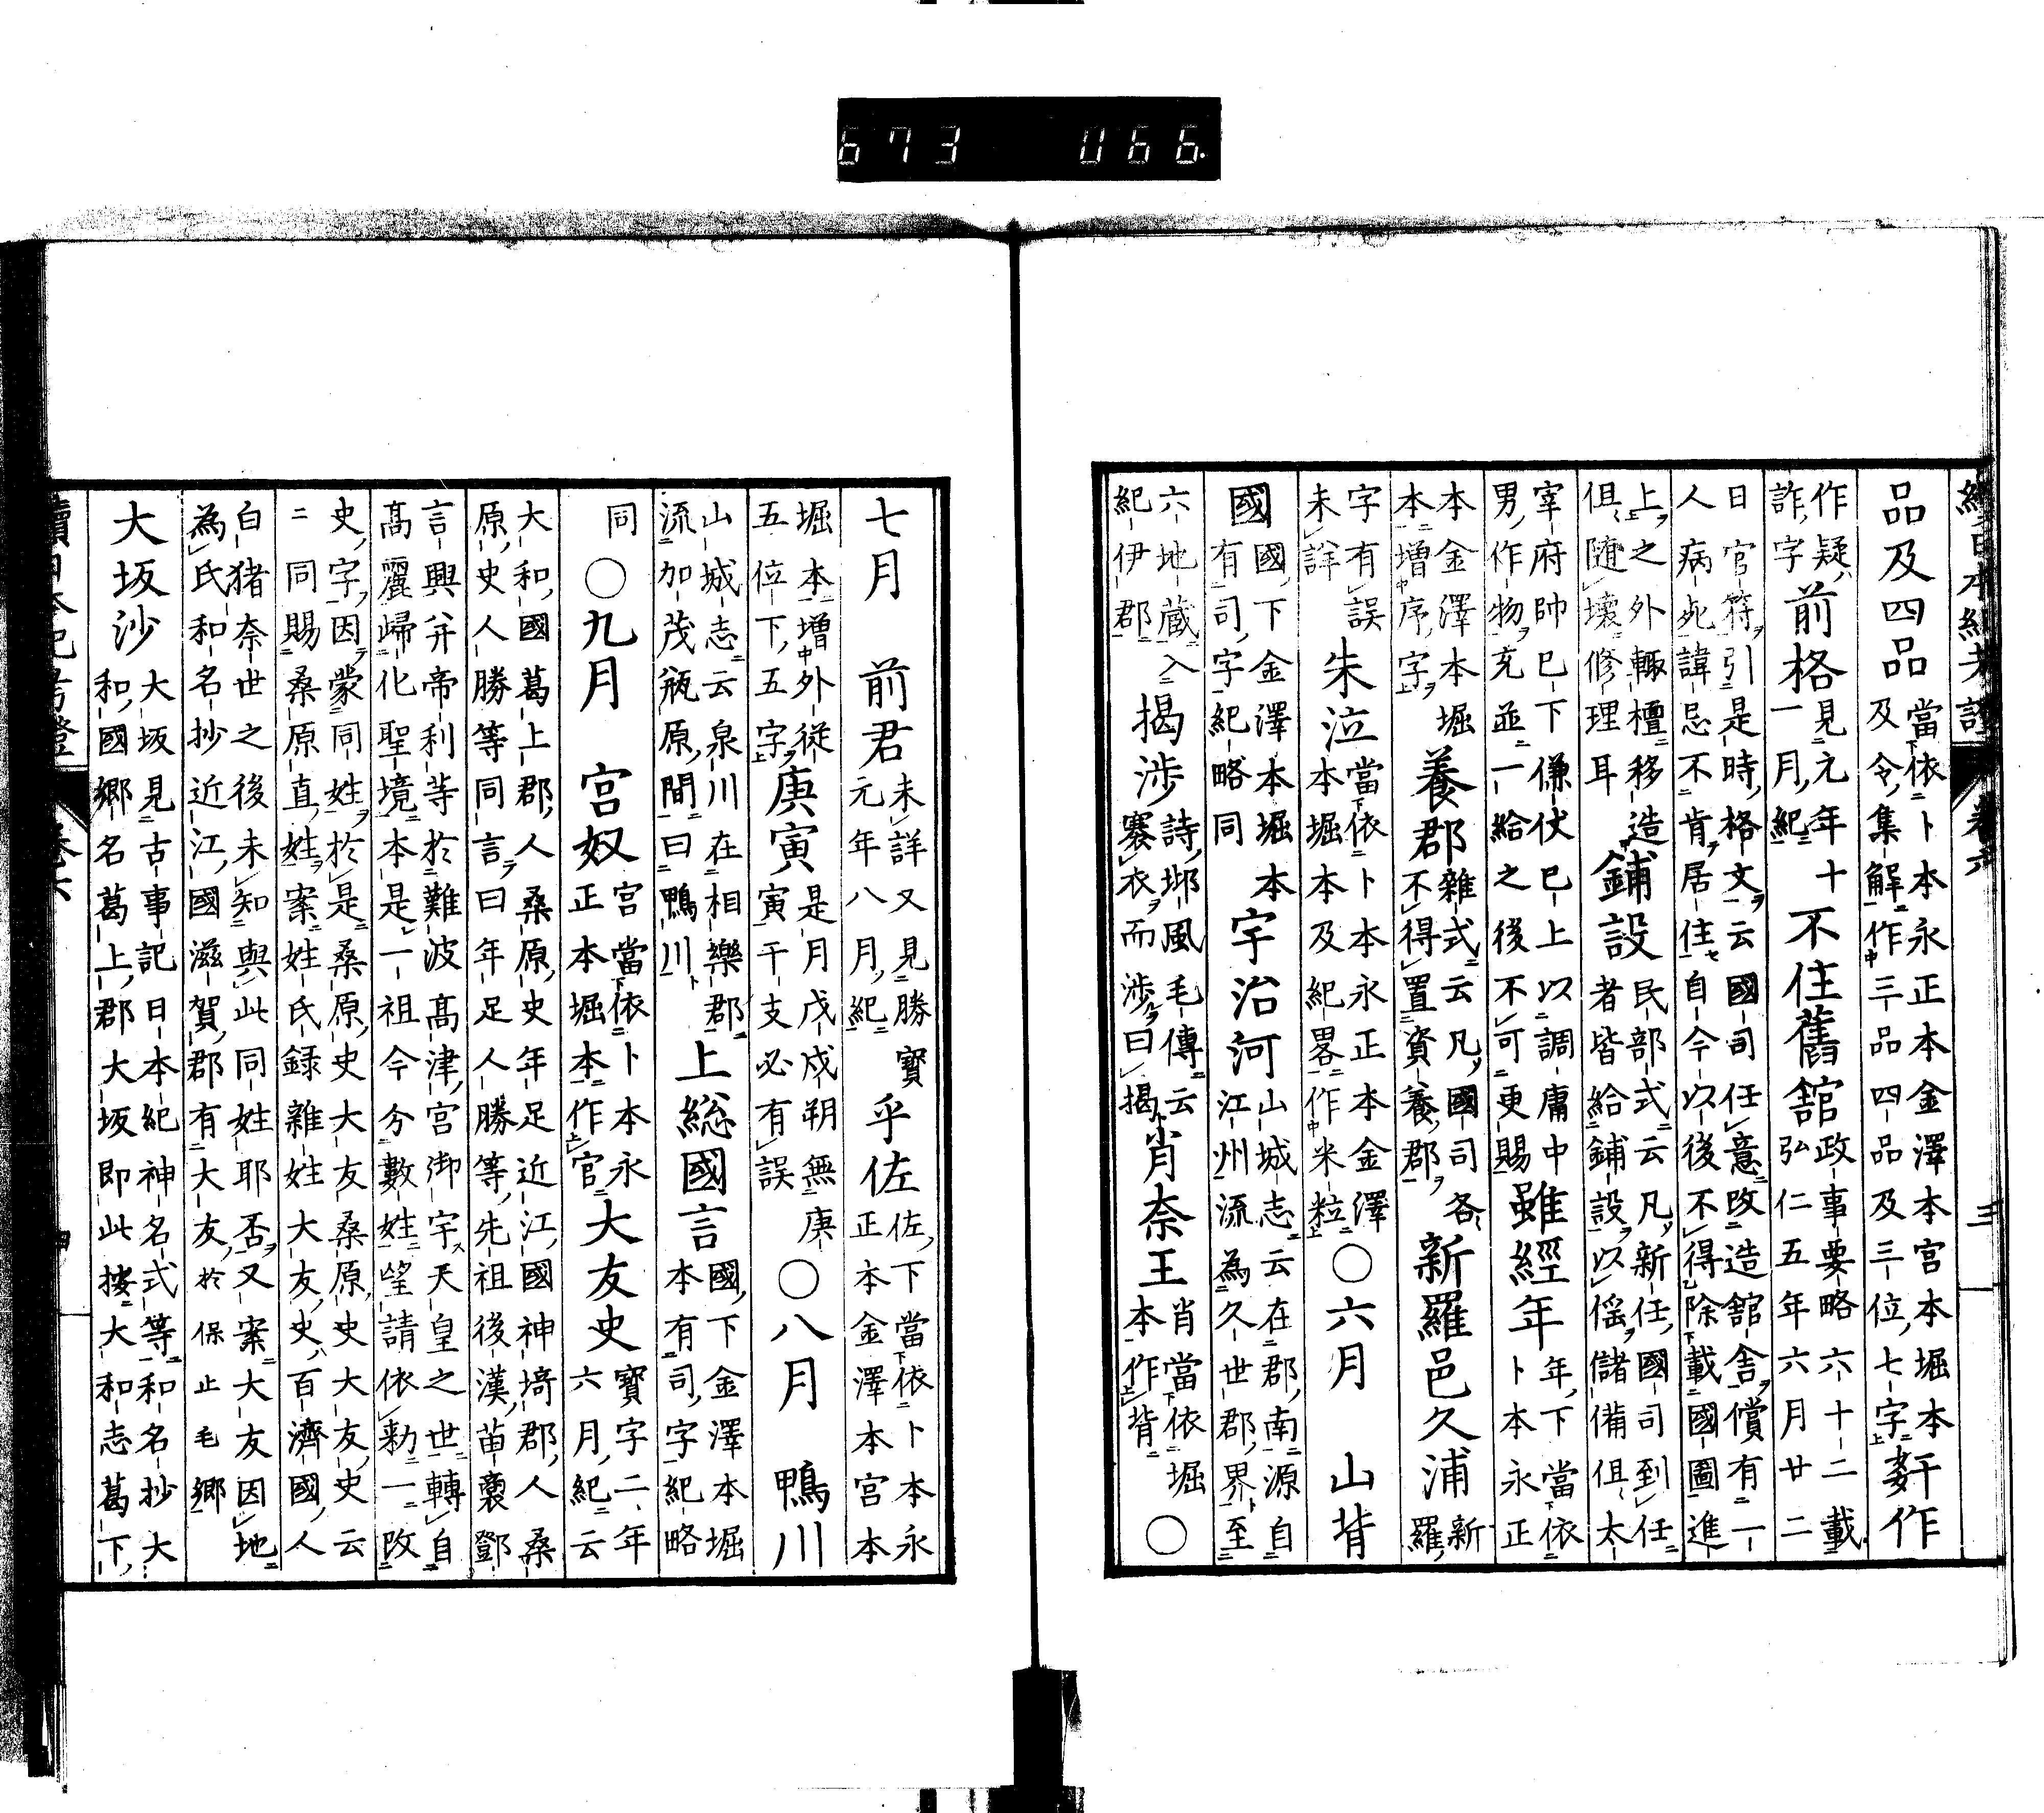 673 066.
續日本紀考證 卷六 三
品及四品 當依卜本永正本金澤本宮本堀本及令集解作三品四品及三位七字 姧作
作疑詐字 前格 見元年十一月紀 不住舊舘 政事要略六十二載弘仁五年六月廿二
日官符引是時格文云國司任意改造舘舍儻有一人病死諱忌不肯居住自今以後不得除載國圖進
上之外輙擅移造但隨壞修理耳 鋪設 民部式云凡新任國司到任者皆給鋪設以傜儲備但太
宰府帥已下傔仗已上以調庸中男作物充並一給之後不可更賜 雖經年 年下當依卜本永正
本金澤本堀本增序字 養郡 雜式云凡國司各不得置資養郡 新羅邑久浦 新羅
字有誤未詳 朱泣 當依卜本永正本金澤本堀本及紀畧作米粒 ○六月 山背
國 國下金澤本堀本有司字紀略同 宇治河 山城志云在郡南源自江州流為久世郡界至
六地蔵入紀伊郡 揭涉 詩邶風毛傳云褰衣而涉曰揭 肖奈王 肖當依堀本作背 ○
七月 前君 未詳又見勝寳元年八月紀 乎佐 佐下當依卜本永正本金澤本宮本
堀本增外從五位下五字 庚寅 是月戊戌朔無庚寅干支必有誤 ○八月 鴨川
山城志云泉川在相樂郡流加茂瓶原間曰鴨川 上総國言 國下金澤本堀本有司字紀略
同 ○九月 宮奴 宮當依卜本永正本堀本作官 大友史 寳字二年六月紀云
大和國葛上郡人桑原史年足近江國神埼郡人桑原史人勝等同言曰年足人勝等先祖後漢苗裔鄧
言興并帝利等於難波高津宮御宇天皇之世轉自高麗歸化聖境本是一祖今分數姓望請依勑一改
史字因蒙同姓於是桑原史大友桑原史大友史云二同賜桑原直姓案姓氏録雜姓大友史百濟國人
白猪奈世之後未知與此同姓耶否又案大友因地為氏和名抄近江國滋賀郡有大友於保止毛鄉
大坂沙 大坂見古事記日本紀神名式等和名抄大和國鄉名葛上郡大坂即此按大和志葛下
續日本紀考證 卷六 四